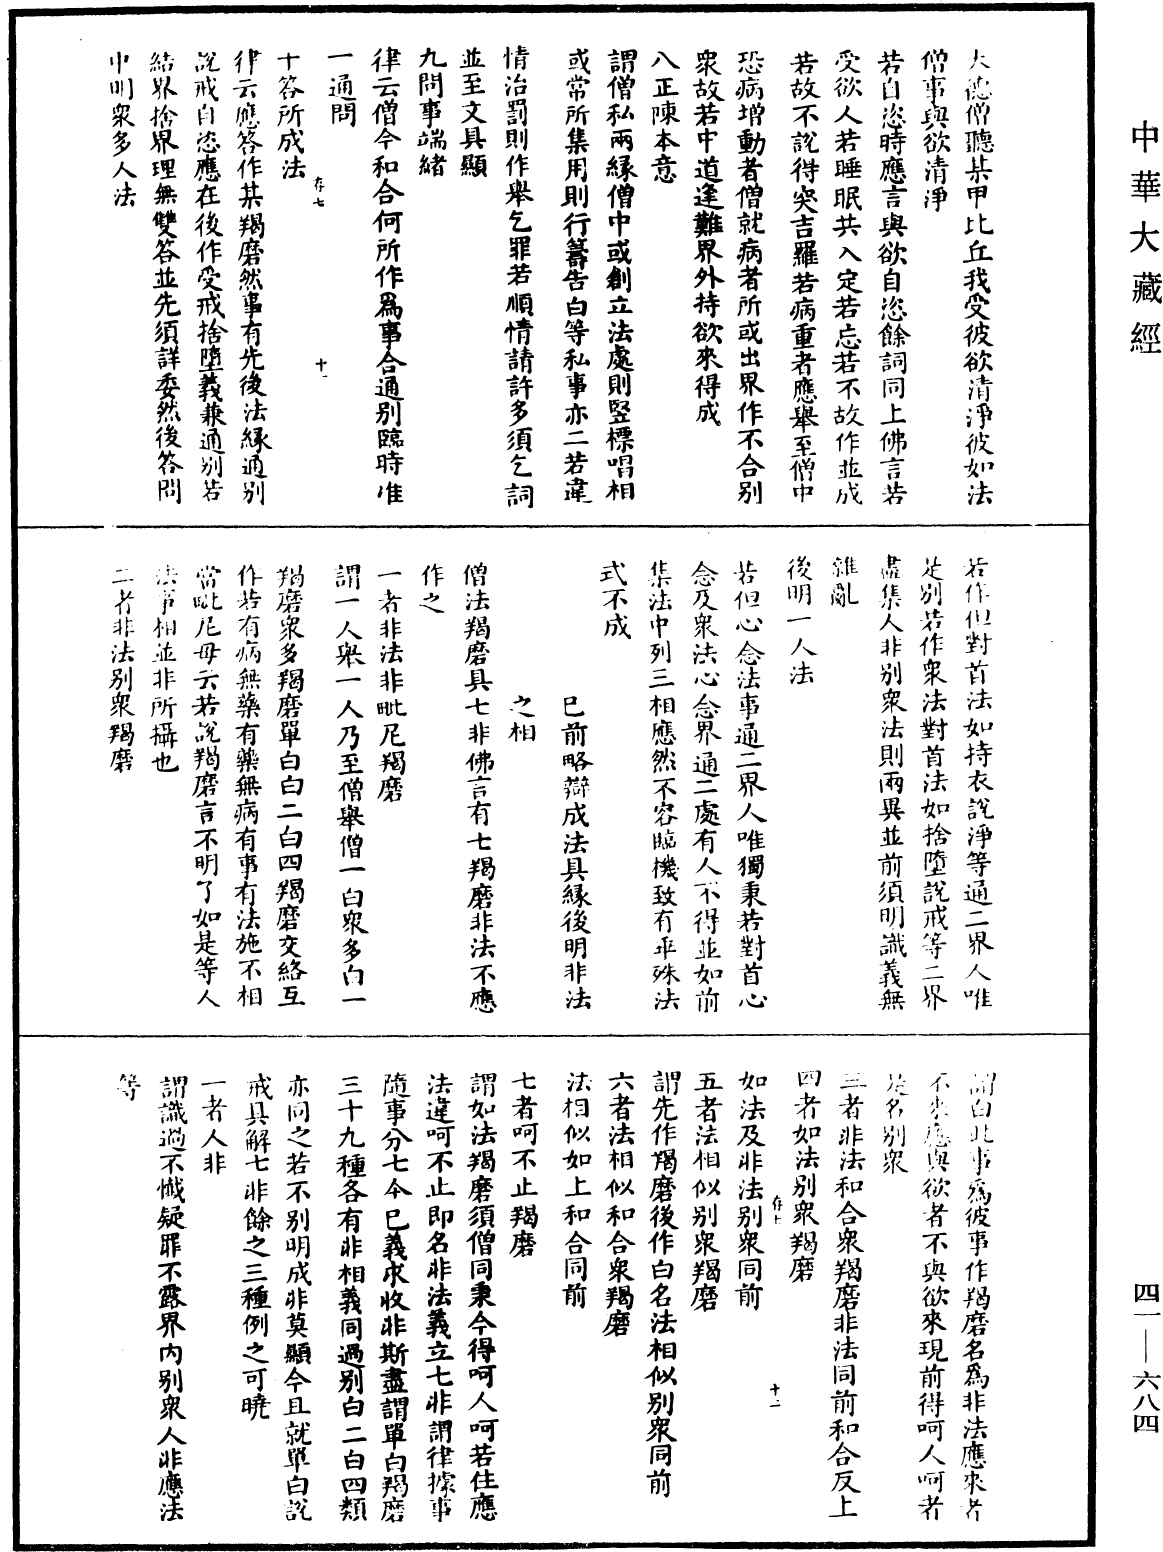 中華大藏經
大德僧聽某甲比丘我受彼欲清淨彼如法
僧事與欲清淨
若自恣時應言與欲自恣餘詞同上佛言若
受欲人若睡眠共入定若忘若不故作並成
若故不說得突吉羅若病重者應舉至僧中
恐病增動者僧就病者所或出界作不合別
衆故若中道逢難界外持欲來得成
八正陳本意
謂僧私兩緣僧中或創立法處則竪標唱相
或常所集用則行籌告白等私事亦二若違
情治罰則作舉乞罪若順情請許多須乞詞
並至文具顯
九問事端緒
律云僧今和合何所作爲事合通別臨時准
一通問
十答所成法
律云應答作某羯磨然事有先後法緣通別
說戒自恣應在後作受戒捨墮義兼通別若
結界捨界理無雙答並先須詳委然後答問
中明衆多人法
存七
十一
若作但對首法如持衣說淨等通二界人唯
是別若作衆法對首法如捨墮說戒等二界
盡集人非別衆法則兩異並前須明識義無
雜亂
後明一人法
若但心念法事通二界人唯獨秉若對首心
念及衆法心念界通二處有人不得並如前
集法中列三相應然不容臨機致有乖殊法
式不成
巳前略辯成法具緣後明非法
之相
僧法羯磨具七非佛言有七羯磨非法不應
作之
一者非法非毗尼羯磨
謂一人舉一人乃至僧舉僧一白衆多白一
羯磨衆多羯磨單白白二白四羯磨交絡互
作若有病無藥有藥無病有事有法施不相
當毗尼母云若說羯磨言不明了如是等人
法事相並非所攝也
二者非法別衆羯磨
謂白此事爲彼事作羯磨名爲非法應來者
不來應與欲者不與欲來現前得呵人呵者
是名別衆
三者非法和合衆羯磨非法同前和合反上
四者如法別衆羯磨
如法及非法別衆同前
五者法相似別衆羯磨
謂先作羯磨後作白名法相似別衆同前
六者法相似和合衆羯磨
法相似如上和合同前
七者呵不止羯磨
謂如法羯磨須僧同秉今得呵人呵若住應
法違呵不止即名非法義立七非謂律據事
隨事分七今巳義求收非斯盡謂單白羯磨
三十九種各有非相義同過別白二白四類
亦同之若不別明成非莫顯今且就單白說
戒具解七非餘之三種例之可曉
一者人非
謂識過不懺疑罪不露界內別衆人非應法
等
存七
十二
四一—六八四